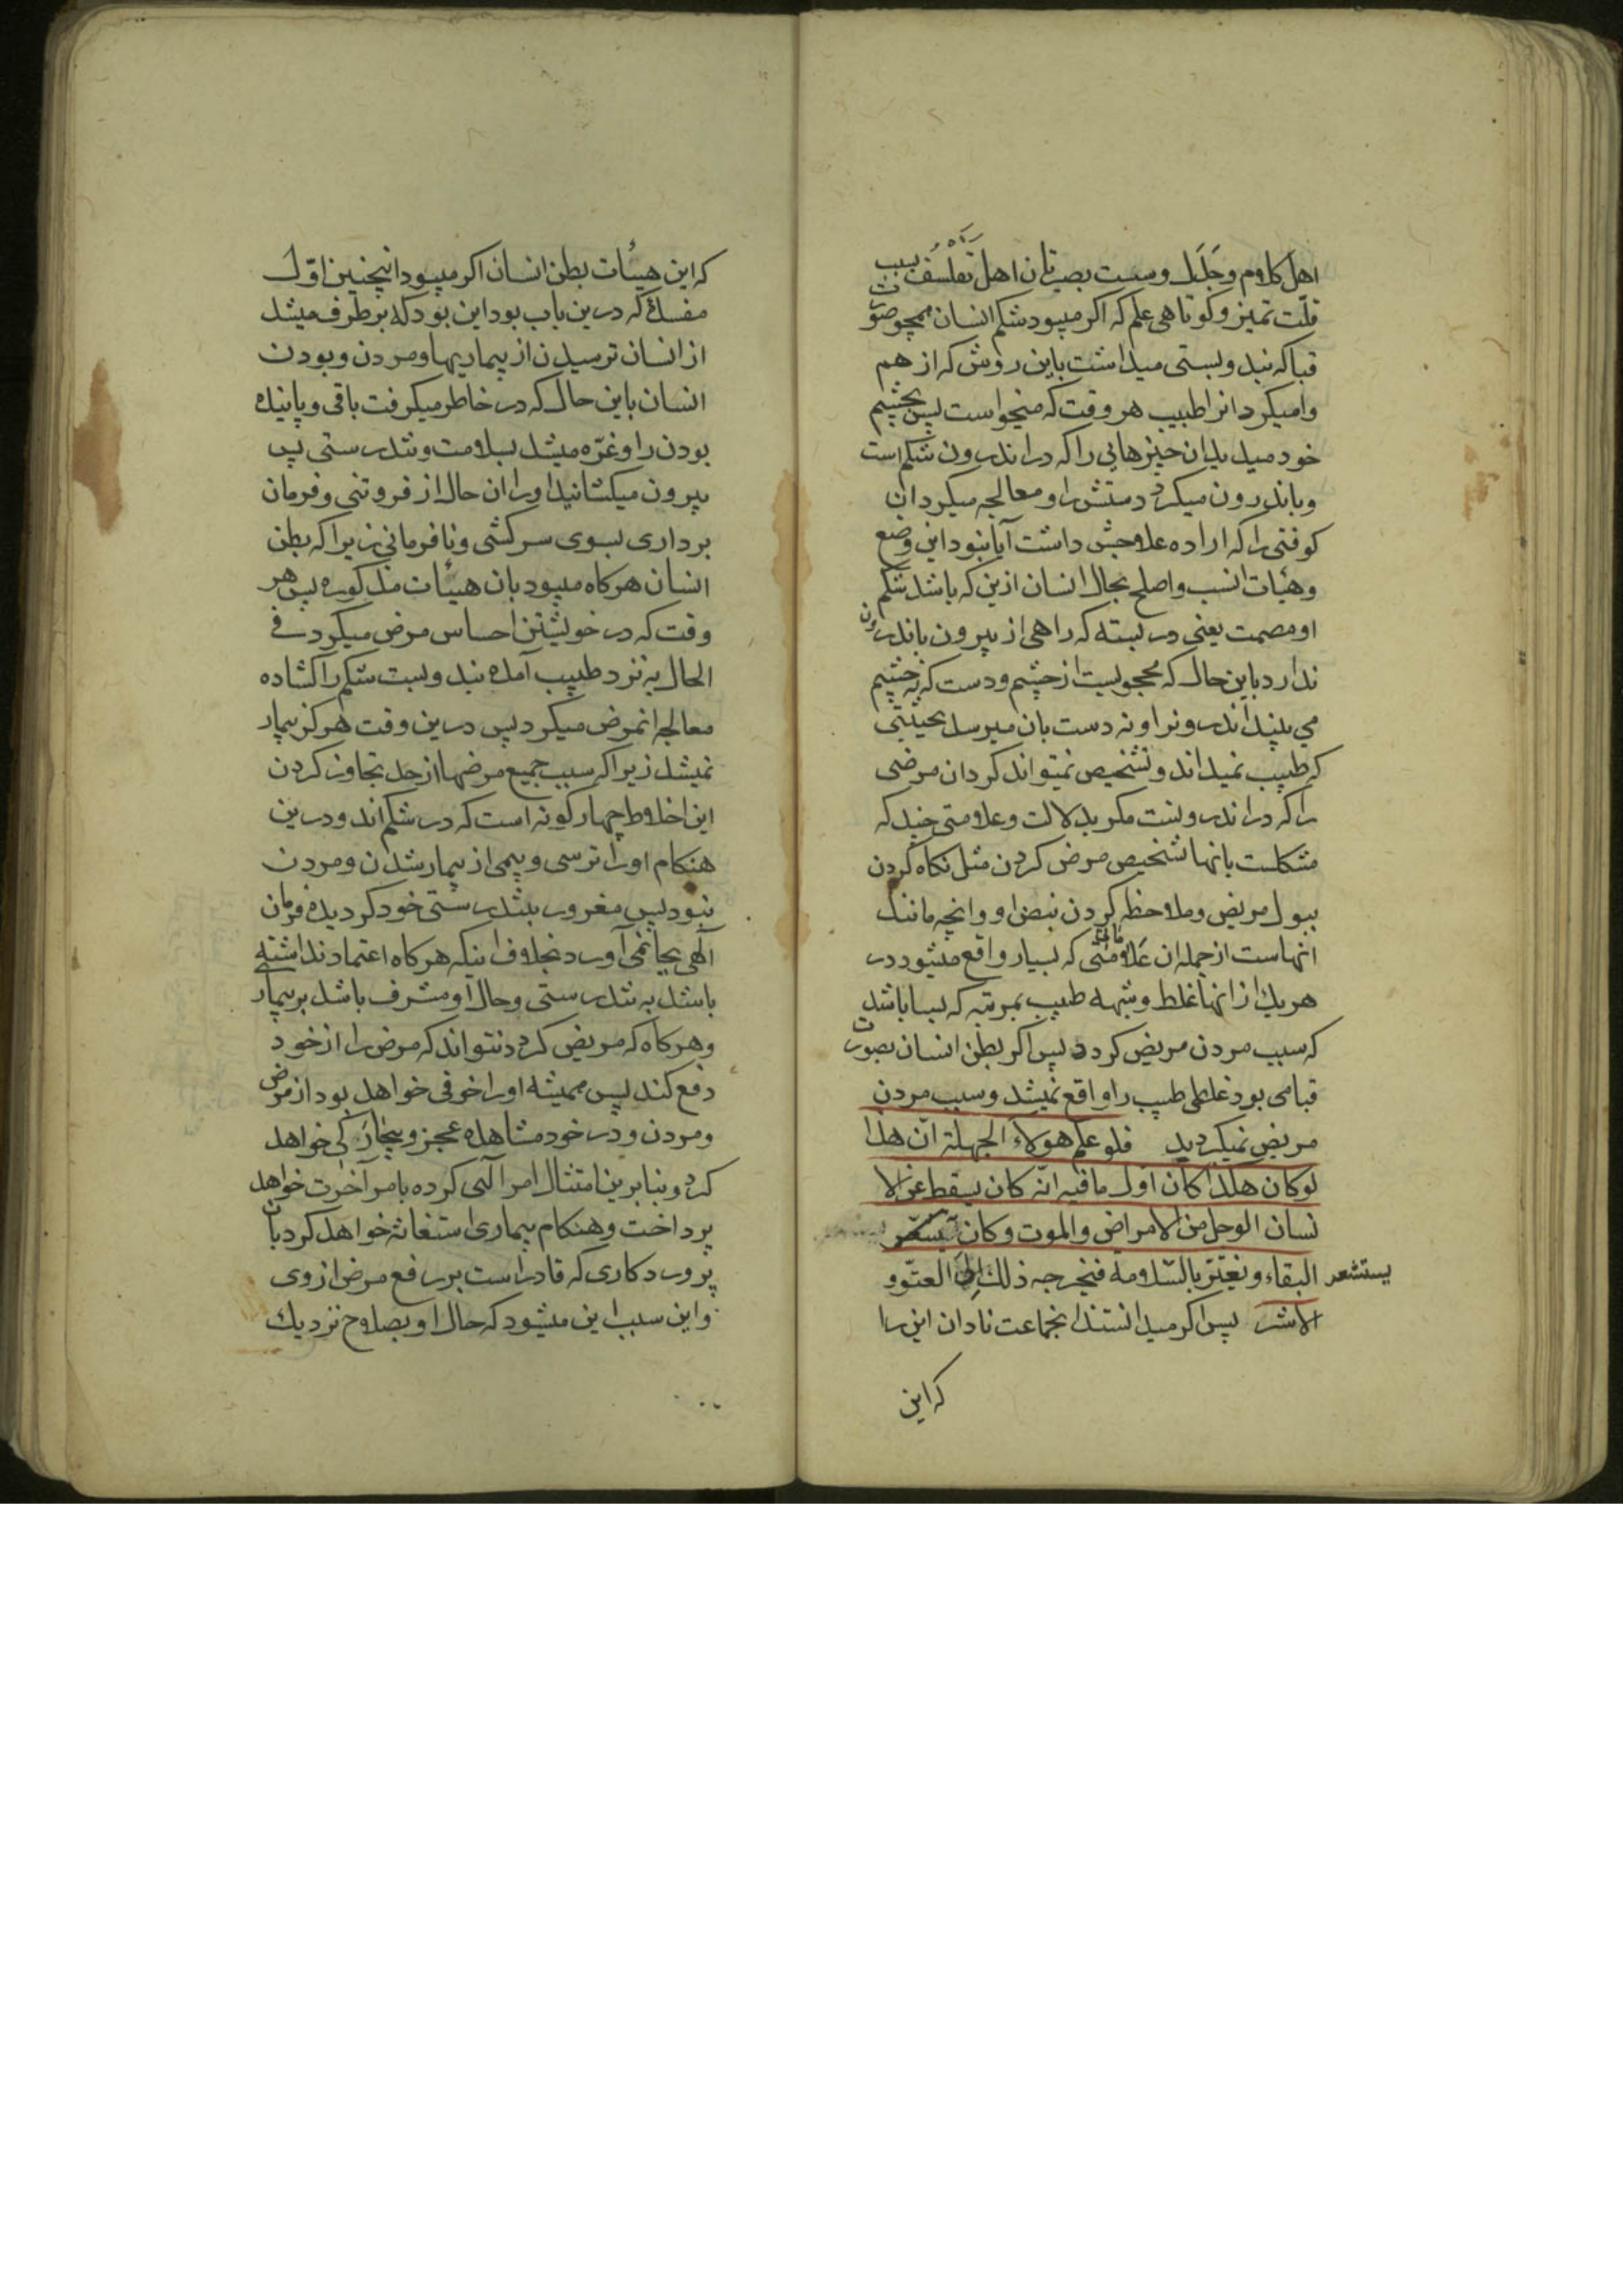 اهل کلام و جَدَل و سست بصیرتان اهل تفلسف بسبب
قلّت تمیز و کوتاهی علم که اکر میبود شکم انسان همچو صورت
قبا که بند و بستی میداشت باین روش که از هم
وامیکرد انرا طبیب هر وقت که میخواست پس بچشم
خود میدید ان چیزهایی را که در اندرون شکم است
و باندرون میکرد دستش را و معالجه میکرد ان
کوفتی را که اراده علاجش داشت آیا نبود این وضع
و هیأت انسب و اصلح بحال انسان ازین که باشد شکم
او مصمت یعنی در بسته که راهی از بیرون باندرون
ندارد باین حال که محجوبست از چشم و دست که نه چشم
می بیند اندرونرا و نه دست بان میرسد بحیثیتی
که طبیب نمیداند و تشخیص نمیتواند کرد ان مرضی
را که در اندرونست مکر بدلالت و علامتی چند که
مشکلست بانها تشخیص مرض کردن مثل نکاه کردن
ببول مریض و ملاحظه کردن نبض او و انچه مانند
انهاست از جمله ان علاماتی که بسیار واقع میشود در
هر یك از انها غلط و شبهه طبیب بمرتبه که بسا باشد
که سبب مردن مریض کردد پس اکر بطن انسان بصورت
قبامی بود غلطی طبیب را واقع نمیشد و سبب مردن
مریض نمیکردید فلو علم هولاء الجهلة انّ هذا
لو کان هکذا کان اول مافیه انّه کان یسقط عن الا
نسان الوجل من الامراض والموت وکان یستشعر
یستشعر
البقاء و یغترّ بالسّلامة فیخرجه ذلك الی العتوّ و
الاشر پس اکر میدانستند انجماعت نادان این را
که این
که این هیئات بطن انسان اکر میبود انچنین اوّل
مفسدۀ که درین باب بود این بود که برطرف میشد
از انسان ترسیدن از بیماریها و مردن و بودن
انسان باین حال که در خاطر میکرفت باقی و پاینده
بودن را و غرّه میشد بسلامت و تندرستی پس
بیرون میکشانید او را ان حال از فروتنی و فرمان
برداری بسوی سرکشی و نافرمانی زیرا که بطن
انسان هرکاه میبود بان هیئات مذکوره پس هر
وقت که در خویشتن احساس مرض میکرد فی
الحال به نزد طبیب آمده بند و بست شکم را کشاده
معالجه انمرض میکرد پس درین وقت هرکز بیمار
نمیشد زیرا که سبب جمیع مرضها از حد تجاوز کردن
این اخلاط چهار کونه است که در شکم اند و درین
هنکام او را ترسی و بیمی از بیمار شدن و مردن
نبود پس مغرور بتندرستی خود کردیده فرمان
الهی بجا نمی آورد بخلاف اینکه هرکاه اعتماد نداشته
باشد به تندرستی و حال او مشرف باشد بر بیمار
و هرکاه که مریض کردد نتواند که مرض را از خود
دفع کند پس همیشه او را خوفی خواهد بود از مرض
و مردن و در خود مشاهده عجز و بیچارکی خواهد
کرد و بنابرین امتثال امر الهی کرده بامر آخرت خواهد
پرداخت و هنکام بیماری استغاثه خواهد کرد بان
پروردکاری که قادر است بر رفع مرض از وی
و این سبب این میشود که حال او بصلاح نزدیك